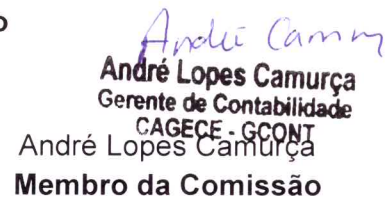 André Camurça
André Lopes Camurça
Gerente de Contabilidade
CAGECE - GCONT
André Lopes Camurça
Membro da Comissão